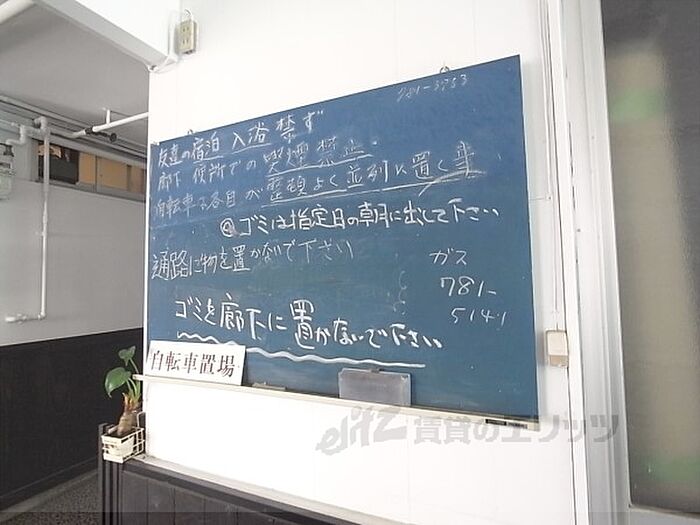 781-5753
友達の宿泊 入浴 禁ず
廊下 便所での喫煙禁止
自転車は各自が整頓よく並列に置く事
◎ゴミは指定日の朝に出して下さい
通路に物を置かないで下さい
ガス
781-
5141
ゴミを廊下に置かないで下さい
自転車置場
elitz 賃貸のエリッツ